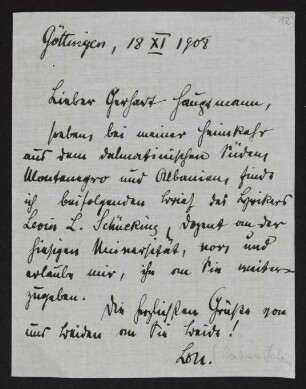 12
Göttingen, 18 XI 1908
Lieber Gerhart Hauptmann,
soeben, bei meiner Heimkehr
aus dem dalmatinischen Süden,
Montenegro und Albanien, finde
ich beifolgenden Brief des Lyrikers
Levin L. Schücking, Dozent an der
hiesigen Universität, vor, und
erlaube mir, ihn an Sie weiter-
zugeben.
Die herzlichsten Grüße von
uns beiden an Sie beide!